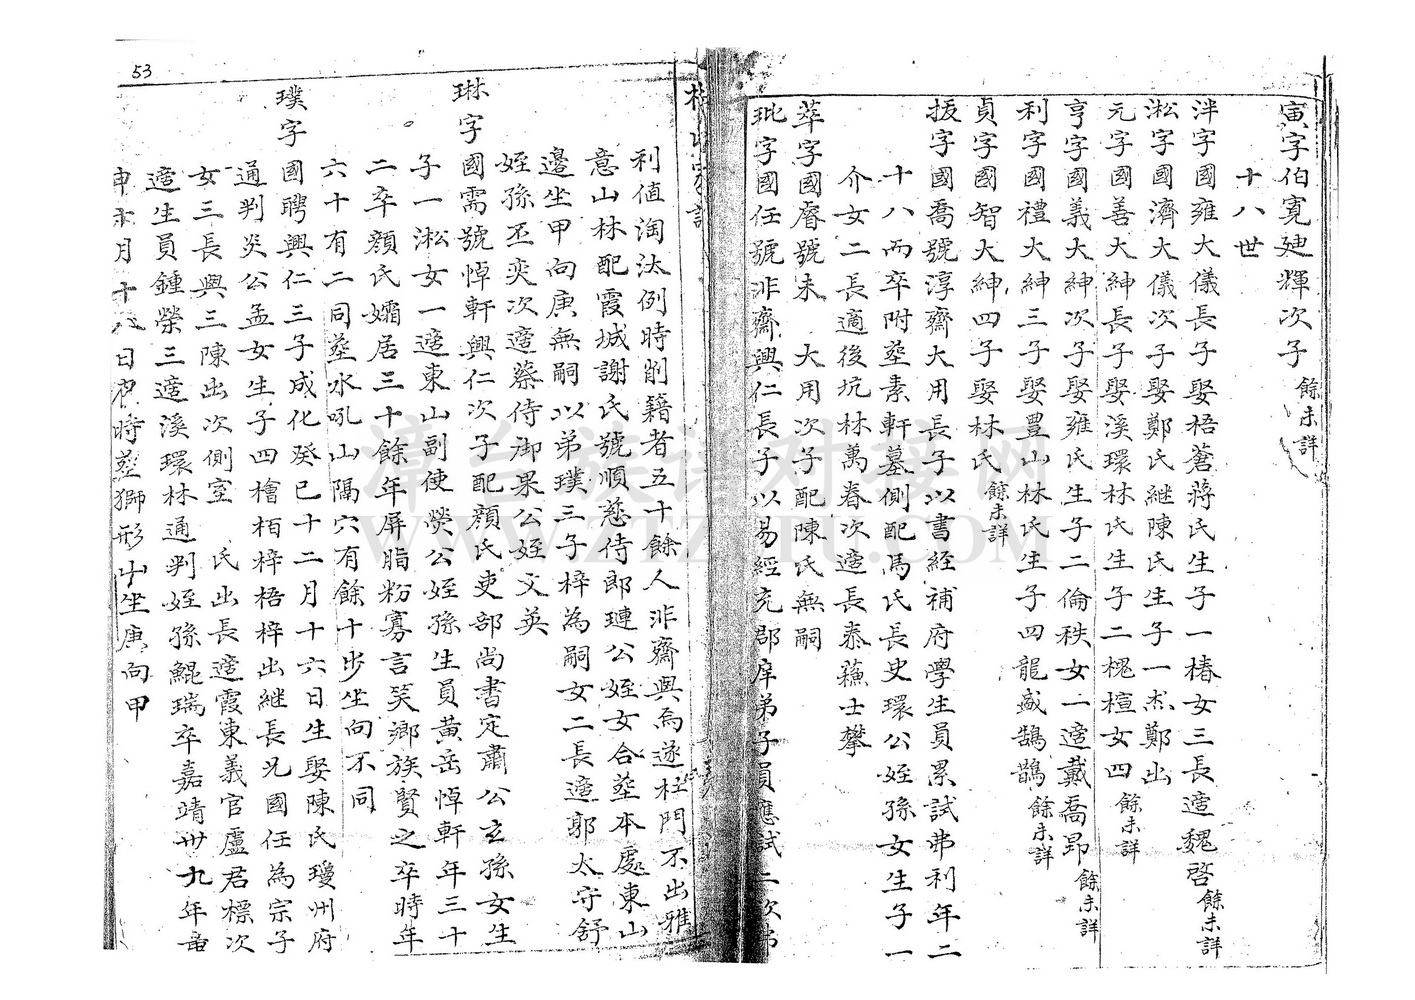 寅字伯寬廸輝次子 餘未詳
十八世
泮字國雍大儀長子娶梧蒼蔣氏生子一椿女三長適魏啓 餘未詳
淞字國濟大儀次子娶鄭氏継陳氏生子一杰鄭出
元字國善大紳長子娶溪環林氏生子二槐楦女四 餘未詳
亨字國義大紳次子娶雍氏生子二倫秩女一適戴喬昂 餘未詳
利字國禮大紳三子娶豊山林氏生子四龍盛鵠鵲 餘未詳
貞字國智大紳四子娶林氏 餘未詳
振字國喬號淳齋大用長子以書經補府學生員累試弗利年二
十八而卒附塟素軒墓側配馮氏長史環公姪孫女生子一
介女二長適後坑林萬春次適長泰蘓士攀
萃字國睿號未 大用次子配陳氏無嗣
玭字國任號非齋興仁長子以易經充郡庠弟子員應試二次弗
利值淘汰例時削籍者五十餘人非齋與焉遂杜門不出雅
意山林配霞城謝氏號順慈侍郎璉公姪女合塟本處東山
邉坐甲向庚無嗣以弟璞三子梓為嗣女二長適郭太守舒
姪孫丕奕次適蔡侍御果公姪文英
琳字國需號悼軒興仁次子配顔氏吏部尚書定肅公玄孫女生
子一淞女一適東山副使榮公姪孫生員黃岳悼軒年三十
二卒顔氏孀居三十餘年屏脂粉寡言笑鄉族賢之卒時年
六十有二同塟水吼山隔穴有餘十步坐向不同
璞字國聘興仁三子成化癸巳十二月十六日生娶陳氏瓊州府
通判炎公孟女生子四檜栢梓梧梓出継長兄國任為宗子
女三長與三陳出次側室 氏出長適霞東義官盧君標次
適生員鍾榮三適溪環林通判姪孫鯤瑞卒嘉靖卅九年
申 月十八日 時塟獅形山坐庚向甲
53
漳台族谱对接网
WWW.ZTZUPU.COM